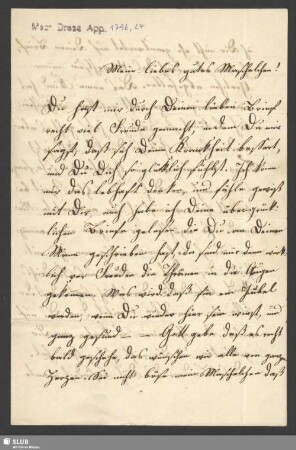 Mscr. Dresd. App. 1796, 24
Mein liebes gutes Maschelchen!
Du hast mir durch Deinen lieben Brief
recht viel Freude gemacht, indem Du mir
sagst, daß sich Deine Krankheit bessert,
und Du Dich so glücklich fühlst. Ich kann
mir das lebhaft denken, und fühle gewiß
mit Dir, auch habe ich Deine überglück-
lichen Briefe gelesen die Du an Deinen
Mann geschrieben hast, da sind mir denn wirk-
lich vor Freuden die Thränen in die Augen
gekommen. Was wird daß für ein Jubel
werden, wenn Du wieder hier sein wirst, und
ganz gesund — — Gott gebe daß es recht
bald geschehe, das wünschen wir alle von ganzem
Herzen. Sei nicht böse mein Maschelchen daß
SLUB
Wir führen Wissen.